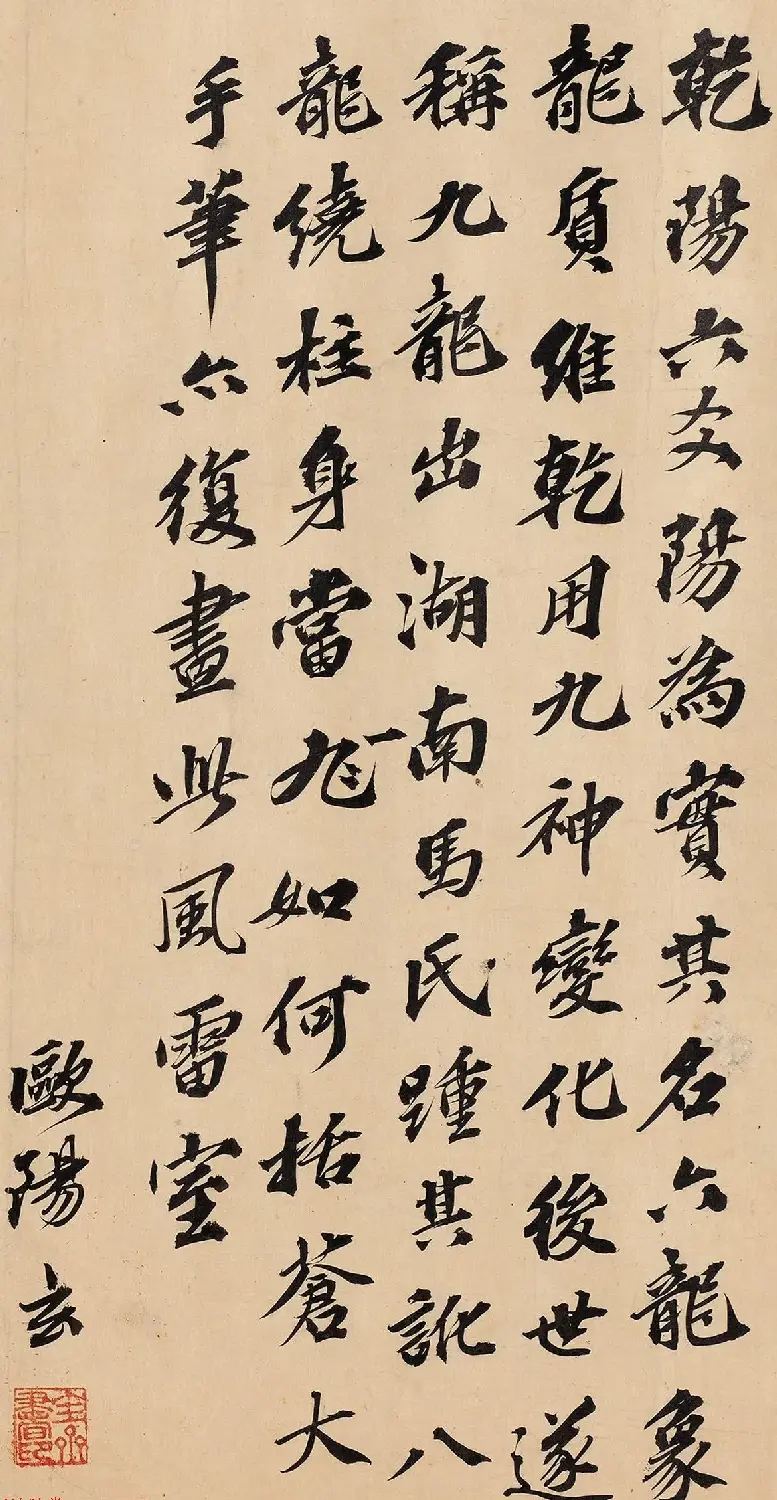 乾陽六爻陽為實其名六龍象
龍質維乾用九神變化後世遂
稱九龍出湖南馬氏踵其訛八
龍繞柱身當一如何括蒼大
手筆亦復畫此風雷室
歐陽玄